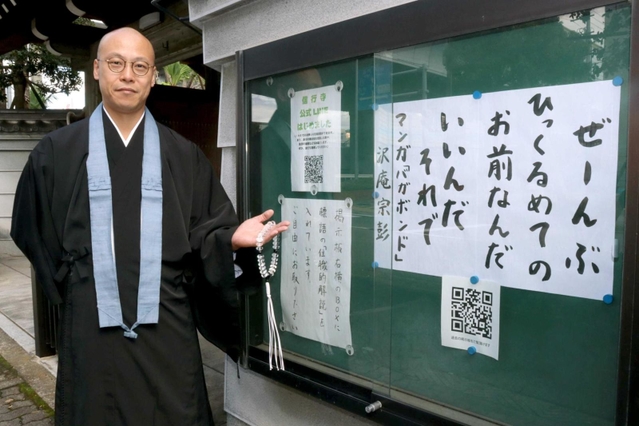 ぜーんぶ
ひっくるめての
お前なんだ
いいんだ
それで
マンガ「バガボンド」
沢庵宗彭
公式LINE
はじめました
掲示板右横のBOXに
標語の「住職的解説」を
入れています
ご自由にお取りください